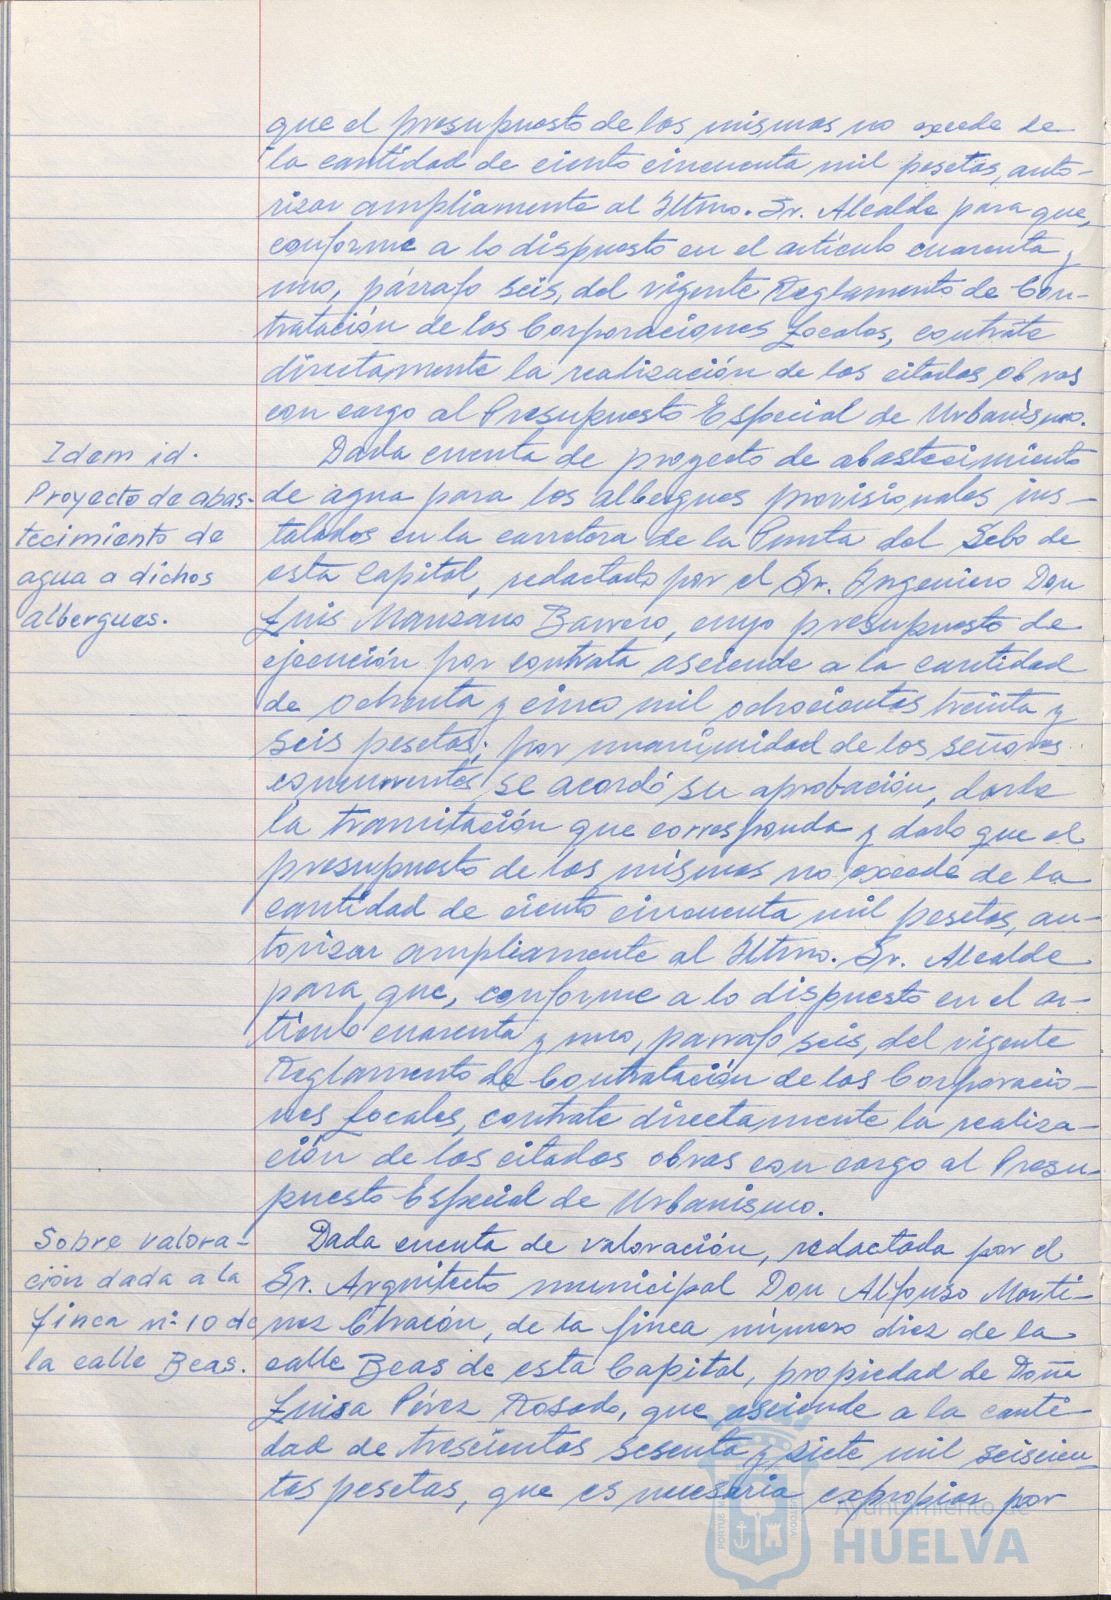 que el presupuesto de los mismos no excede de
la cantidad de ciento cincuenta mil pesetas, auto-
rizar ampliamente al Iltmo. Sr. Alcalde para que,
conforme a lo dispuesto en el artículo cuarenta y
uno, párrafo seis, del vigente Reglamento de Con-
tratación de las Corporaciones Locales, contrate
directamente la realización de las citadas obras
con cargo al Presupuesto Especial de Urbanismo.
Idem id.
Proyecto de abas-
tecimiento de
agua a dichos
albergues.
Dada cuenta de proyecto de abastecimiento
de agua para los albergues provisionales ins-
talados en la carretera de la Punta del Sebo de
esta Capital, redactado por el Sr. Ingeniero Don
Luis Manzano Barrero, cuyo presupuesto de
ejecución por contrata asciende a la cantidad
de ochenta y cinco mil ochocientas treinta y
seis pesetas; por unanimidad de los señores
concurrentes se acordó su aprobación, darle
la tramitación que corresponda y dado que el
presupuesto de los mismos no excede de la
cantidad de ciento cincuenta mil pesetas, au-
torizar ampliamente al Iltmo. Sr. Alcalde
para que, conforme a lo dispuesto en el ar-
tículo cuarenta y uno, parrafo seis, del vigente
Reglamento de Contratación de las Corporacio-
nes Locales, contrate directamente la realiza-
ción de las citadas obras con cargo al Presu-
puesto Especial de Urbanismo.
Sobre valora-
ción dada a la
finca nº 10 de
la calle Beas.
Dada cuenta de valoración, redactada por el
Sr. Arquitecto municipal Don Alfonso Marti-
nez Chacón, de la finca número diez de la
calle Beas de esta Capital, propiedad de Doña
Luisa Pérez Rosado, que asciende a la canti-
dad de trescientas sesenta y siete mil seiscien-
tas pesetas, que es necesaria expropiar por
Ayuntamiento de
HUELVA